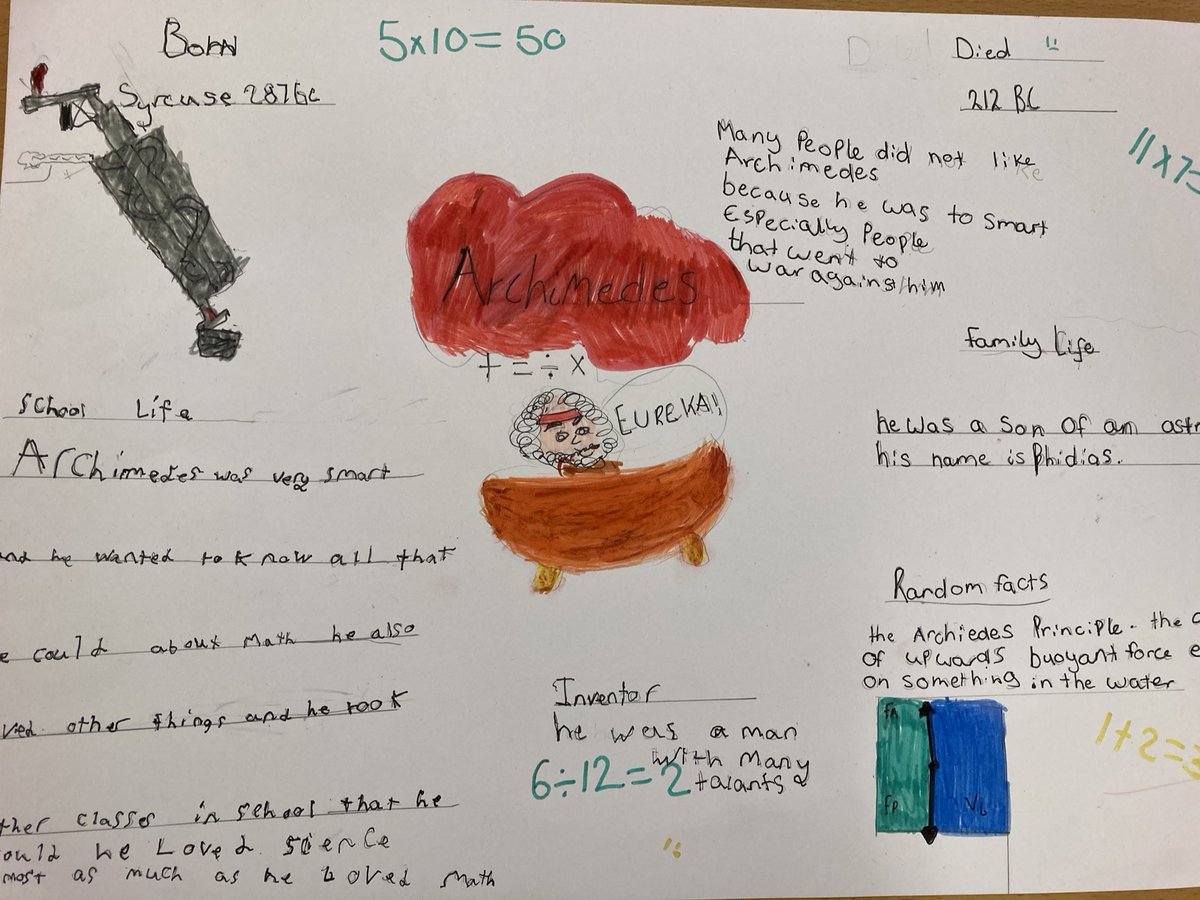 Born
Syrcuse 287BC
5x10=50
Died
212 BC
11x7=
Many People did not like
Archimedes
because he was to smart
Especially People
that went to
war against him
Archimedes
+ = ÷ x
EUREKA!!
Family Life
he was a son of an astr
his name is Phidias.
School Life
Archimedes was very smart
and he wanted to know all that
e could about math he also
ved other things and he took
ther classes in school that he
ould he Loved science
most as much as he Loved math
Inventor
he was a man
with many
talants
6÷12=2
Random facts
the Archiedes Principle. the
of upwards buoyant force e
on something in the water
FA
FP
VL
1+2=3